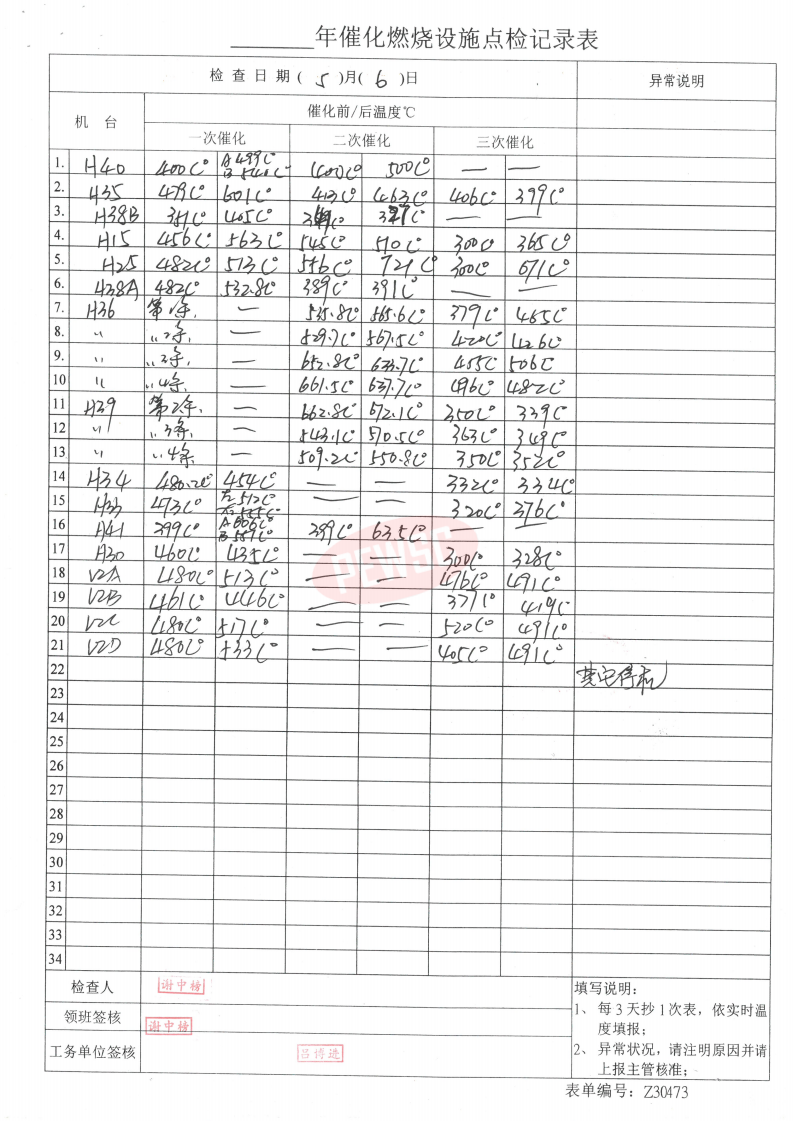 年催化燃烧设施点检记录表
检查日期( 5 )月( 6 )日 异常说明
机 台 催化前/后温度℃
一次催化 二次催化 三次催化
1. H40 400C° A 499C° B 540C° 400C° 500C° — —
2. H35 479C° 601C° 413C° 463C° 406C° 399C°
3. H38B 351C° 405C° — —
4. H15 456C° 563C° 545C° 510C° 300C 365C°
5. H25 482C 513C° 556C° 721C° 300C° 671C°
6. H38A 482C° 532.8C° 389C° 391C° — —
7. H36 — 565.6C° 379C° 465C°
8. 〃 — 529.7C° 567.5C° 420C° 426C°
9. 〃 — 652.8C° 633.7C° 455C° 506C
10 〃 〃4条. — 661.5C° 637.7C° 496C° 482C°
11 H39 第2条. — 662.8C° 672.1C° 350C° 339C°
12 〃 〃3条. — 543.1C° 570.5C° 363C° 349C°
13. 〃 〃4条. — 509.2C° 550.8C° 350C° 352C°
14 H34 480.2C° 454C° — — 332C° 334C°
15 H33 473C° 左512C° 右555C° — — 320C° 376C°
16 H41 299C° A606C° B559C° 299C° 635C° — —
17 H30 460C° 435C° — — 300C° 328C°
18 V2A 480C° 513C° — — 476C° 491C°
19 V2B 461C° 446C° — — 377C° 419C°
20 V2C 480C° 517C° — — 520C° 491C°
21 V2D 480C° 533C° — — 405C° 491C°
22 其它停机
23
24
25
26
27
28
29
30
31
32
33
34
PEWSC
检查人 谢中榜
领班签核 谢中榜
工务单位签核 吕博进
填写说明:
1、每3天抄1次表，依实时温
度填报;
2、异常状况，请注明原因并请
上报主管核准;
表单编号: Z30473